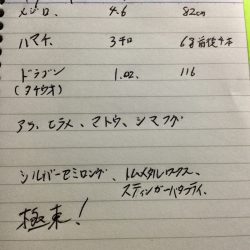 メジロ 4.6 82cm
ハマチ 3キロ 68前後4本
ドラゴン 1.02. 116
(タチウオ)
アラ、ヒラメ、マトウ、シマフグ
シルバーセミロング、トムメタルワークス、
スティンガーバタフライ、
極東!